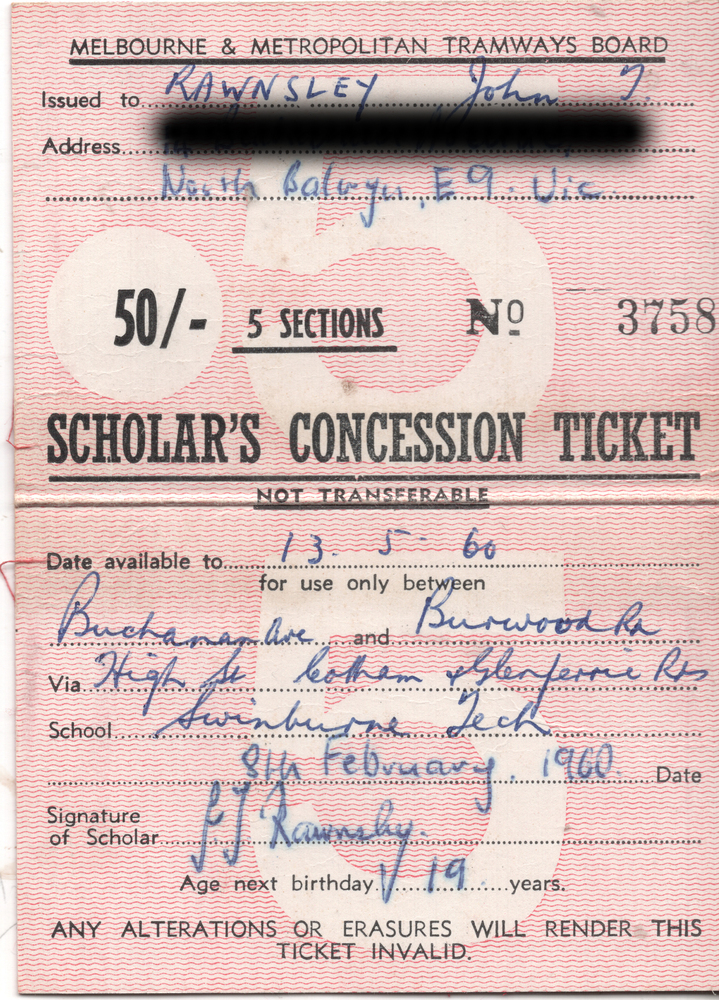 MELBOURNE & METROPOLITAN TRAMWAYS BOARD
Issued to RAWNSLEY John T.
Address
North Balwyn, E9. Vic
50/- 5 SECTIONS No 3758
SCHOLAR'S CONCESSION TICKET
NOT TRANSFERABLE
Date available to 13. 5- 60
for use only between
Buchanan Ave and Burwood Rd
Via High St Cotham & Glenferrie Rds
School Swinburne Tech
8th February. 1960. Date
Signature
of Scholar JT Rawnsley.
Age next birthday 19 years.
ANY ALTERATIONS OR ERASURES WILL RENDER THIS
TICKET INVALID.